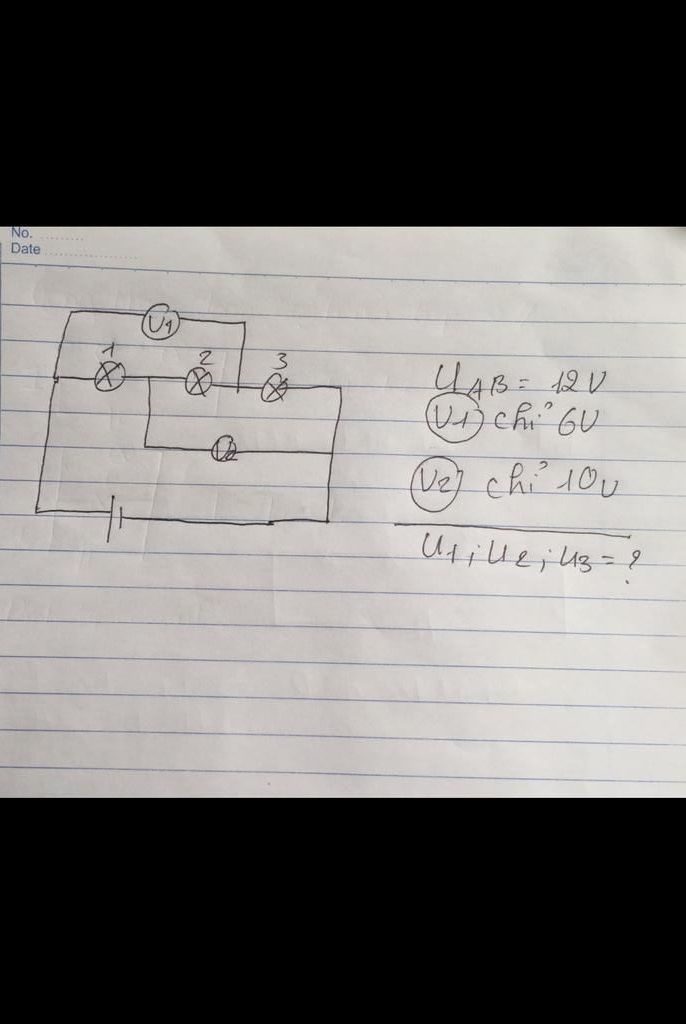 No.
Date
V1
1
2
3
V2
U AB = 12V
V1 chỉ 6V
V2 chỉ 10V
U1; U2; U3 = ?